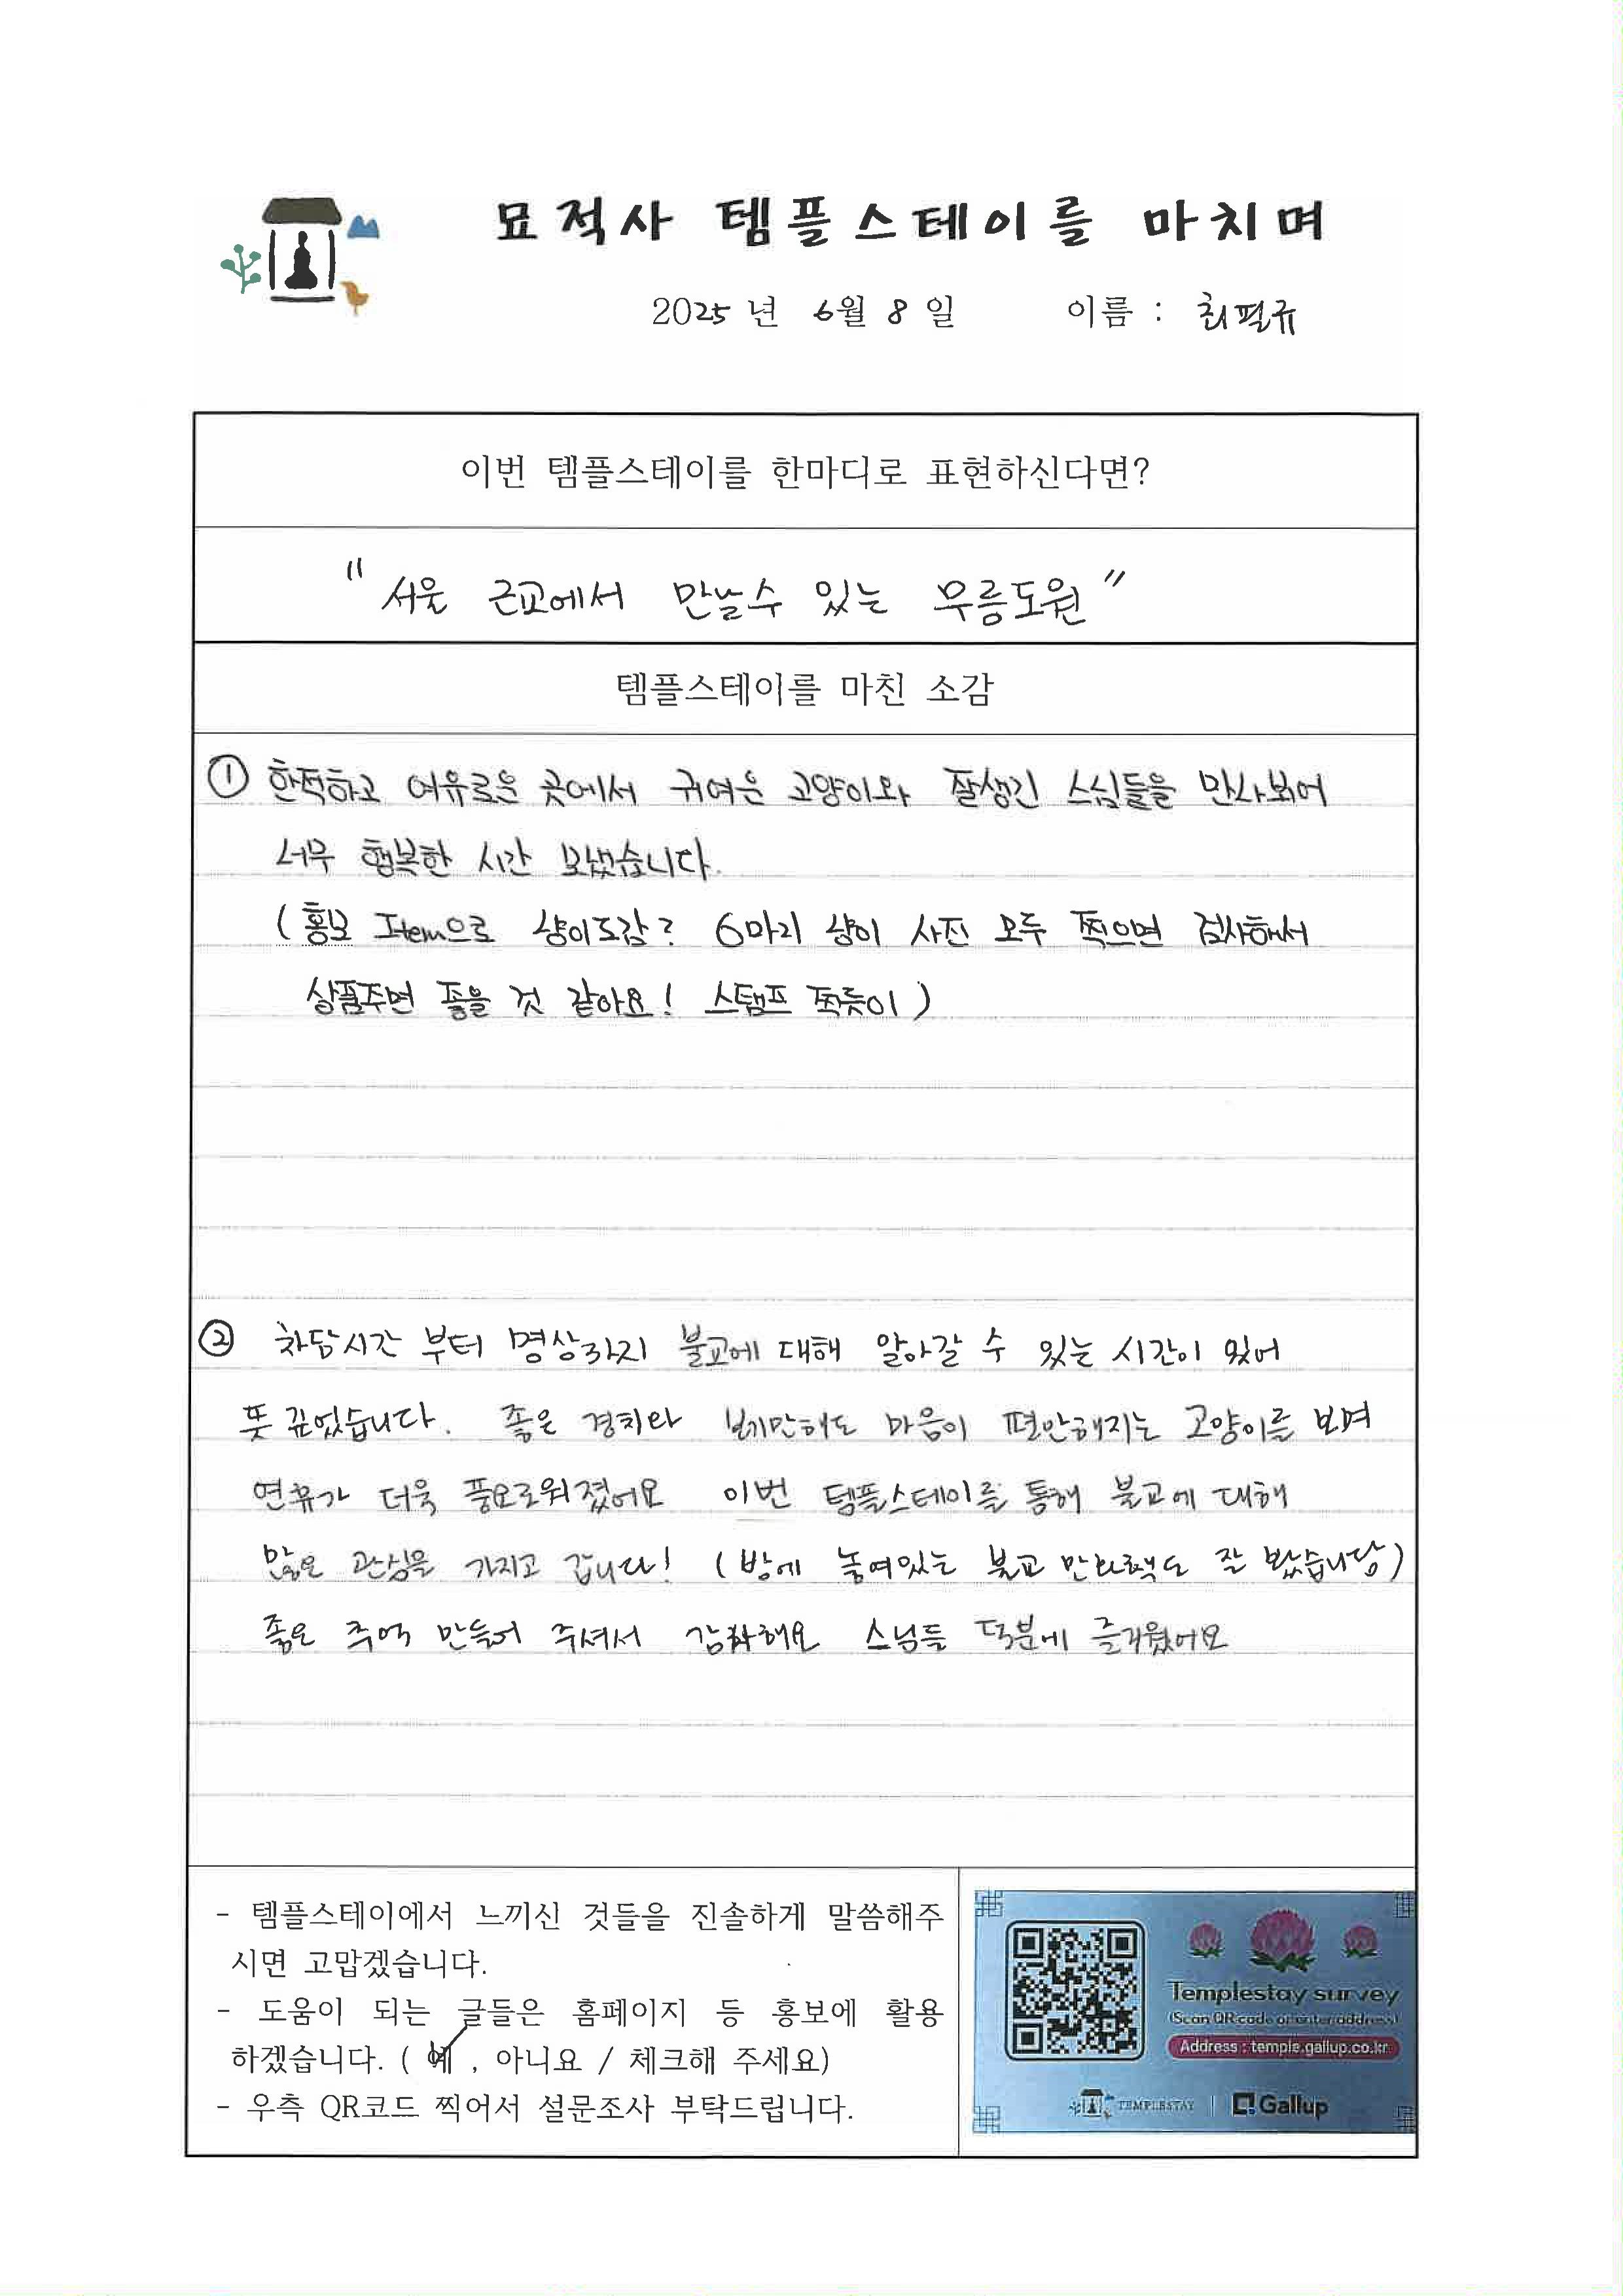 묘적사 템플스테이를 마치며
2025 년 6월 8 일 이름 : 최필규
이번 템플스테이를 한마디로 표현하신다면?
" 서울 근교에서 만날수 있는 무릉도원 "
템플스테이를 마친 소감
① 한적하고 여유로운 곳에서 귀여운 고양이와 잘생긴 스님들을 만나뵈어
너무 행복한 시간 보냈습니다.
( 홍보 Item으로 냥이도감? 6마리 냥이 사진 모두 찍으면 검사해서
상품주면 좋을 것 같아요! 스탬프 찍듯이 )
② 차담시간 부터 명상까지 불교에 대해 알아갈 수 있는 시간이 있어
뜻 깊었습니다. 좋은 경치와 보기만해도 마음이 편안해지는 고양이를 보며
연휴가 더욱 풍요로워졌어요 이번 템플스테이를 통해 불교에 대해
많은 관심을 가지고 갑니다! ( 방에 놓여있는 불교 만화책도 잘 봤습니당)
좋은 추억 만들어 주셔서 감사해요 스님들 덕분에 즐거웠어요
- 템플스테이에서 느끼신 것들을 진솔하게 말씀해주
시면 고맙겠습니다.
- 도움이 되는 글들은 홈페이지 등 홍보에 활용
하겠습니다. ( 예 , 아니요 / 체크해 주세요)
- 우측 QR코드 찍어서 설문조사 부탁드립니다.
Templestay survey
(Scan QR code or enter address)
Address : temple.gallup.co.kr
TEMPLESTAY | Gallup